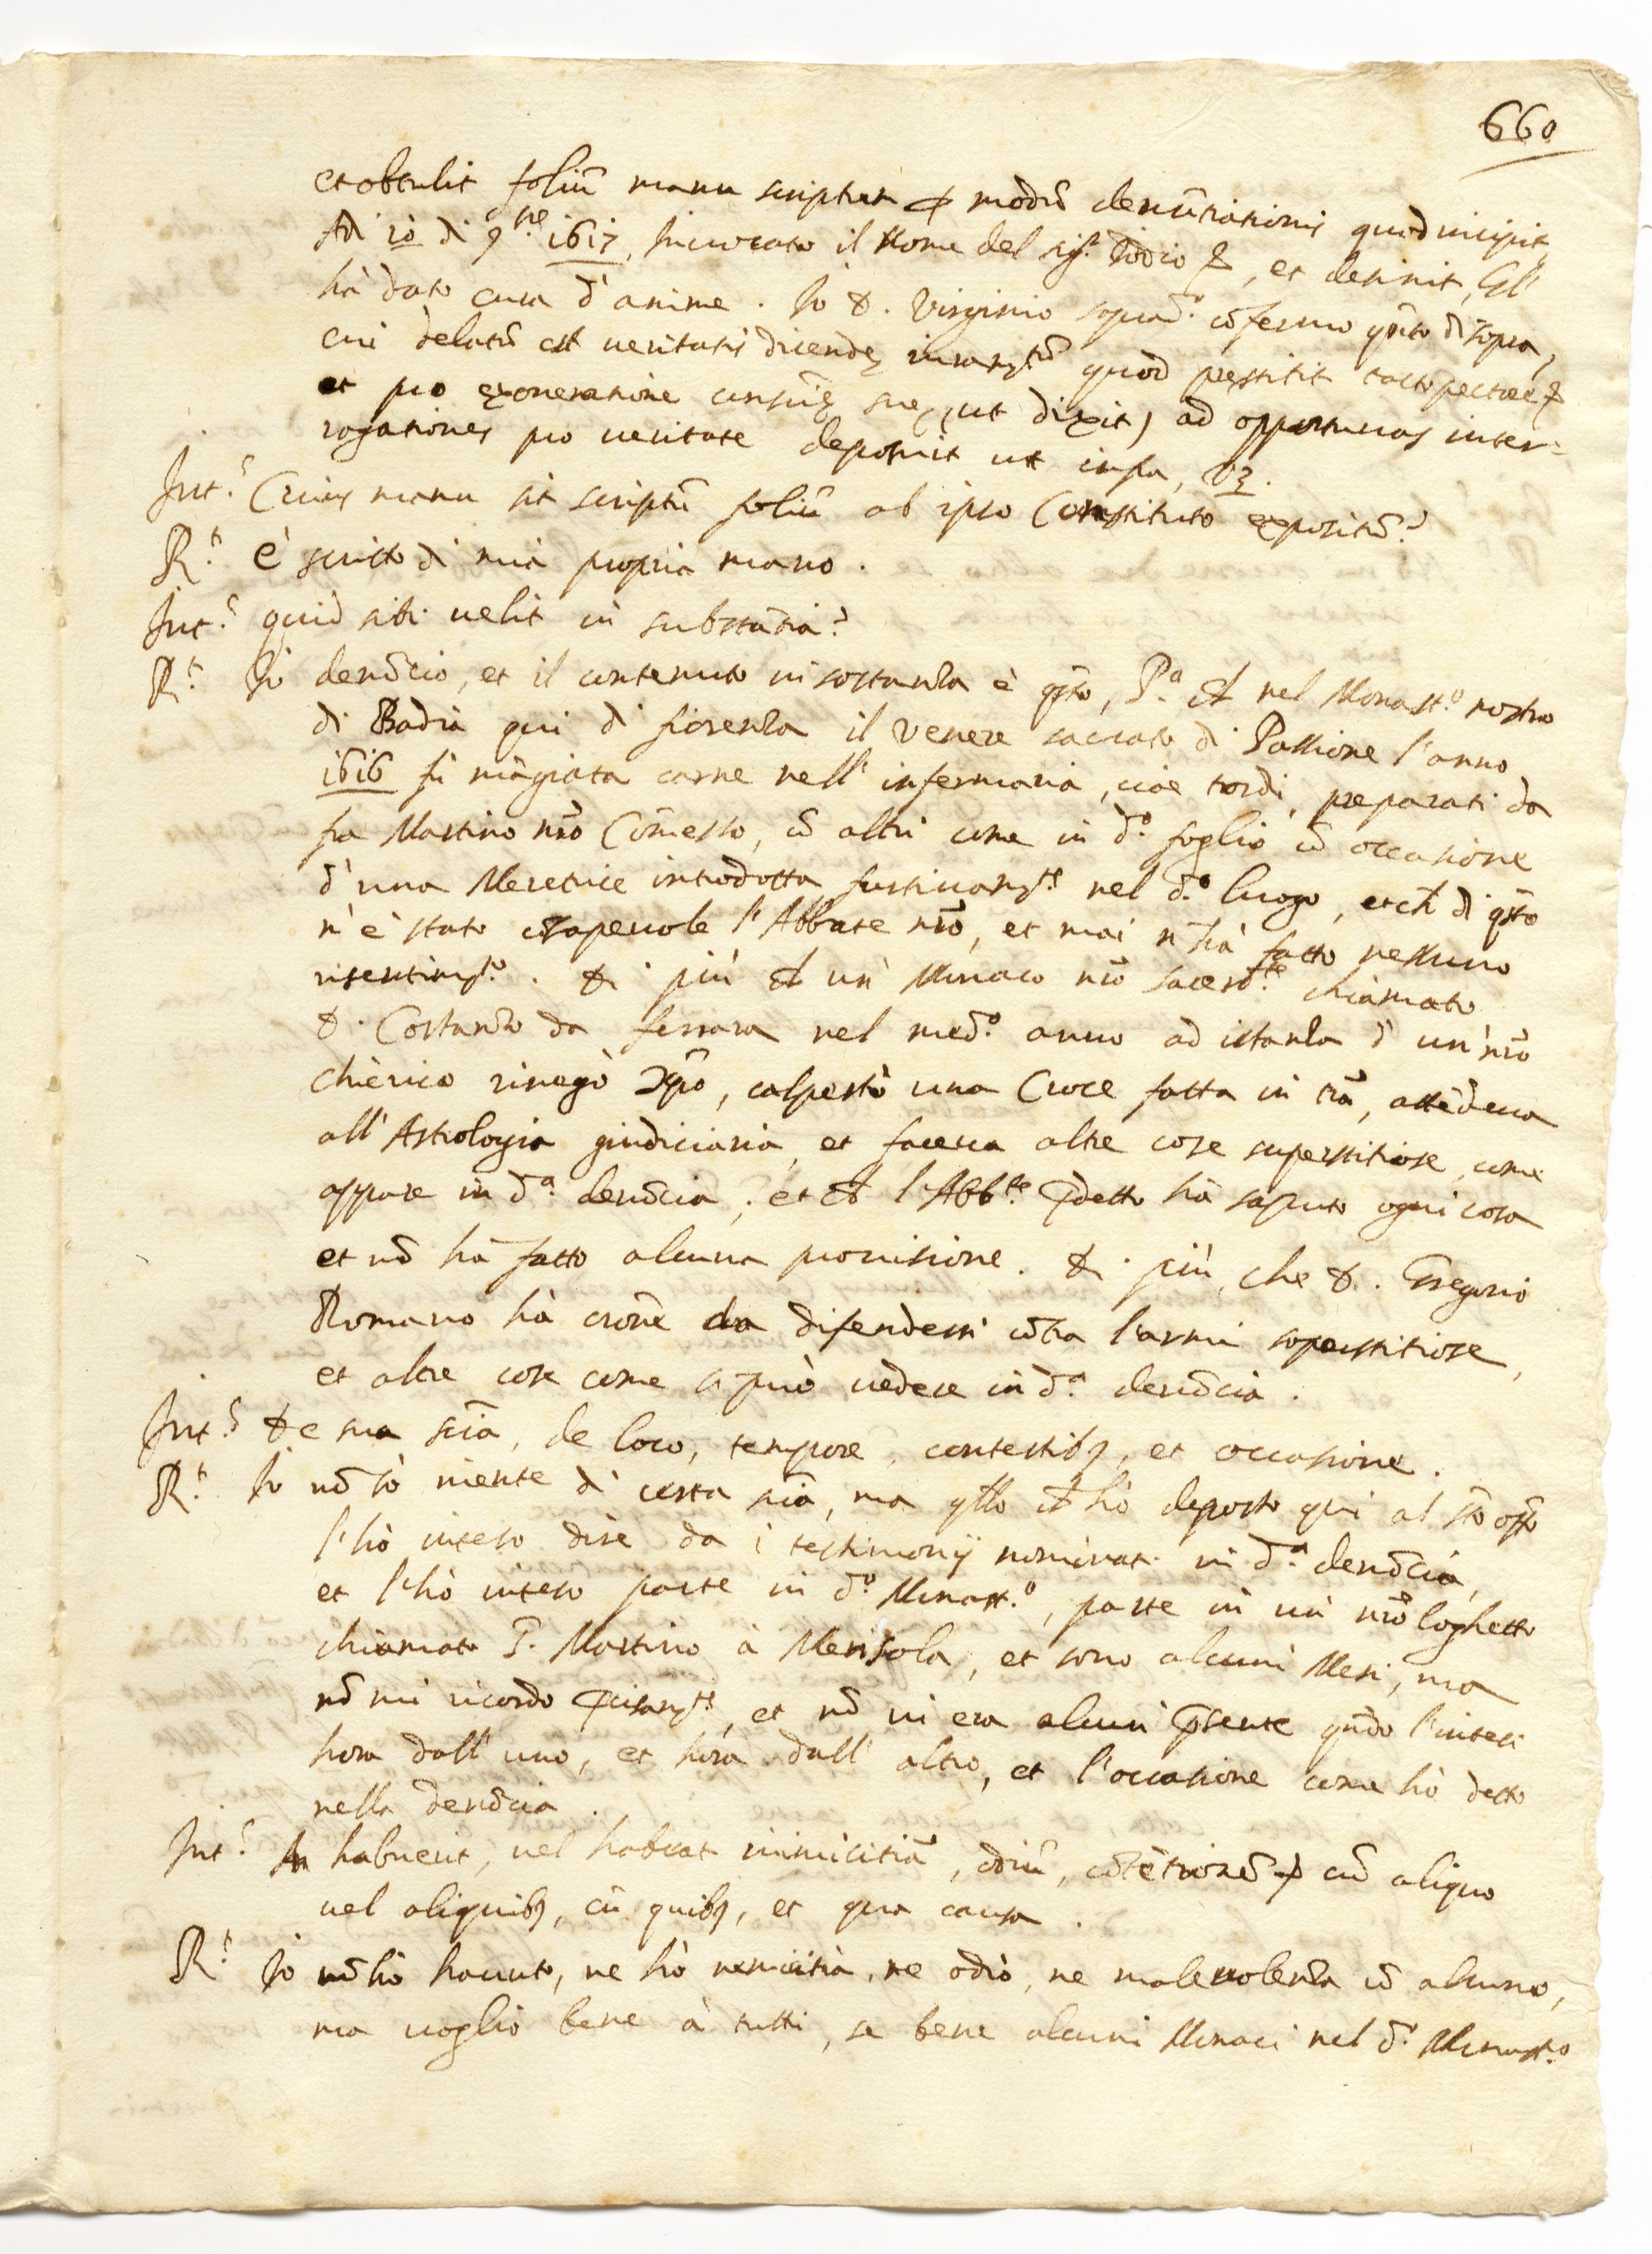 660
et obtulit foliũ manu scriptum ꝑ modũ denũtiationis quod incipit
Adi 10 di 9.bre 1617, Invocato il Nome del sig.r Iddio &, et desinit, gl'
hà dato cura d'anime. Io D. Virginio soprad.o cõfermo q̃to di sopra,
cui delatũ est veritatis dicendę iuram.tũ quod pręstitit tacto pectore &
et pro exoneratione consciẽ suę, (ut dixit) ad opportunas inter=
rogationes pro veritate deposuit ut infra, vz.
Int.s Cuius manu sit scriptũ foliũ ab ipso Constituto expositũ?
R.t è scritto di mia propria mano.
Int.s quid sibi velit in substãtia?
R.t Io denũcio, et il contenuto in sostanza è q̃sto, P.a ch̃ nel Monast.o nostro
di Badia qui di fiorenza il Venere sacrato di Passione l'anno
1616 fù mãgiata carne nell'infermaria, cioe tordi, preparati da
fra Martino nr̃o Cõmesso, cõ altri come in d.o foglio cõ occasione
d'una Meretrice introdotta furtivam.te nel d.o luogo, et ch̃ di q̃sto
n'è stato cõsapevole l'Abbate nr̃o, et mai n'hà fatto nessuno
risentim.to. Di più ch̃ un Monaco nr̃o sacerd.te chiamato
D. Costanzo da ferrara nel med.o anno ad istanza d'un nr̃o
chierico rinegò Xp̃o, calpestò una Croce fatta in trã, attẽdeva
all'Astrologia giudiciaria, et faceva altre cose superstitiose, come
appare in d.a denũcia; et ch̃ l'Abb.te p̃detto hà saputo ogni cosa
et nõ hà fatto alcuna provisione. Di più, che D. Gregorio
Romano hà orõne da difendersi cõtra l'armi soperstitiose,
et altre cose come si può vedere in d.a denũcia.
Int.s De sua sciã, de loco, tempore, contestibꝫ, et occasione.
R.t Io nõ sò niente di certa sciã, ma q̃llo ch̃ hò deposto qui al S.to Off.o
l'hò inteso dire da i testimonij nominati in d.a denũcia,
et l'hò inteso parte in d.o Monast.o, parte in un nr̃o loghetto
chiamato S. Martino à Mensola, et sono alcuni Mesi, ma
nõ mi ricordo p̃cisam.te, et nõ vi era alcun p̃sente q̃do l'intesi
hora dall'uno, et hora dall'altro, et l'occasione come hò detto
nella denũcia.
Int.s An habuerit, vel habeat inimicitiã, odiũ, cõtẽtionẽ & cũ aliquo
vel aliquibꝫ, cũ quibꝫ, et qua causa.
R.t Io nõ hò havuto, ne hò nemicitia, ne odio, ne malevolenza cõ alcuno,
ma voglio bene à tutti, se bene alcuni Monaci nel d.o Monast.o